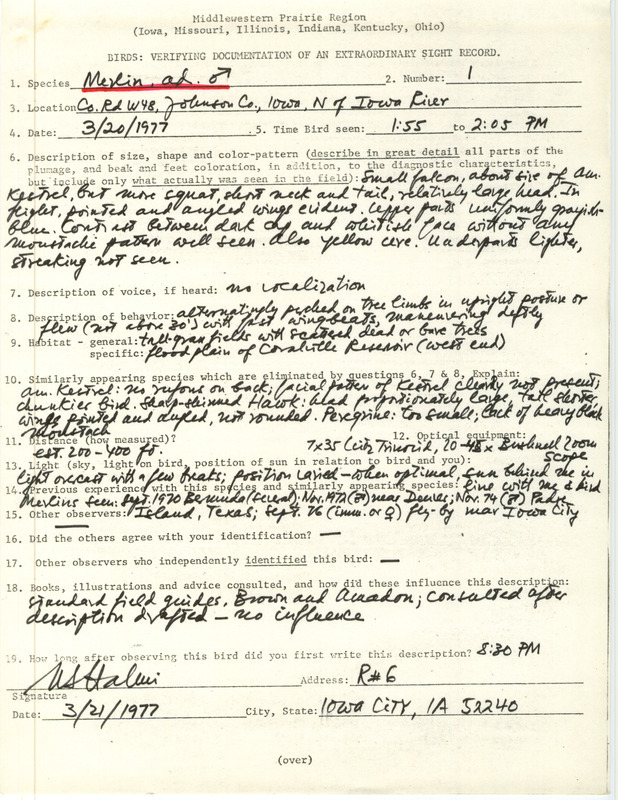 Middlewestern Prairie Region
(Iowa, Missouri, Illinois, Indiana, Kentucky, Ohio)
BIRDS: VERIFYING DOCUMENTATION OF AN EXTRAORDINARY SIGHT RECORD.
1. Species Merlin, ad. ♂ 2. Number: 1
3. Location Co. Rd W48, Johnson Co., Iowa, N of Iowa River
4. Date: 3/20/1977 5. Time Bird seen: 1:55 to 2:05 PM
6. Description of size, shape and color-pattern (describe in great detail all parts of the
plumage, and beak and feet coloration, in addition, to the diagnostic characteristics,
but include only what actually was seen in the field): Small falcon, about size of Am.
Kestrel, but more squat, short neck and tail, relatively large head. In
flight, pointed and angled wings evident. Upper parts uniformly grayish-
blue. Contrast between dark cap and whitish face without any
moustache pattern well seen. Also yellow cere. Underparts lighter,
streaking not seen.
7. Description of voice, if heard: no vocalization
8. Description of behavior: alternatingly perched on tree limbs in upright posture or
flew (not above 30') with fast wing-beats, maneuvering deftly
9. Habitat - general: tall-grass fields with scattered dead or bare trees
specific: flood plain of Coralville Reservoir (west end)
10. Similarly appearing species which are eliminated by questions 6, 7 & 8, Explain:
Am. Kestrel: no rufous on back; facial pattern of Kestrel clearly not present;
chunkier bird. Sharp-shinned Hawk: head proportionately large, tail shorter
wings pointed and angled, not rounded. Peregrine: too small; lack of heavy black
moustach
11. Distance (how measured)? 12. Optical equipment:
est. 200-400 ft. 7x35 Leitz Trinovid, 20-45x Bushnell Zoom
scope
13. Light (sky, light on bird, position of sun in relation to bird and you):
light overcast with a few breaks; position varied - when optimal, sun behind me in
line with me & bird
14. Previous experience with this species and similarly appearing species:
Merlins seen: Sept. 1970 Bermuda (several); Nov. 1972 near Denver; Nov. 74 Padre
15. Other observers: Island, Texas; Sept. 76 (imm. or ♀) fly-by near Iowa City
—
16. Did the others agree with your identification? —
17. Other observers who independently identified this bird: —
18. Books, illustrations and advice consulted, and how did these influence this description:
standard field guides, Brown and Amadon; consulted after
description drafted - no influence
19. How long after observing this bird did you first write this description? 8:30 PM
Address: R#6
Signature
Date: 3/21/1977 City, State: Iowa City, IA 52240
(over)